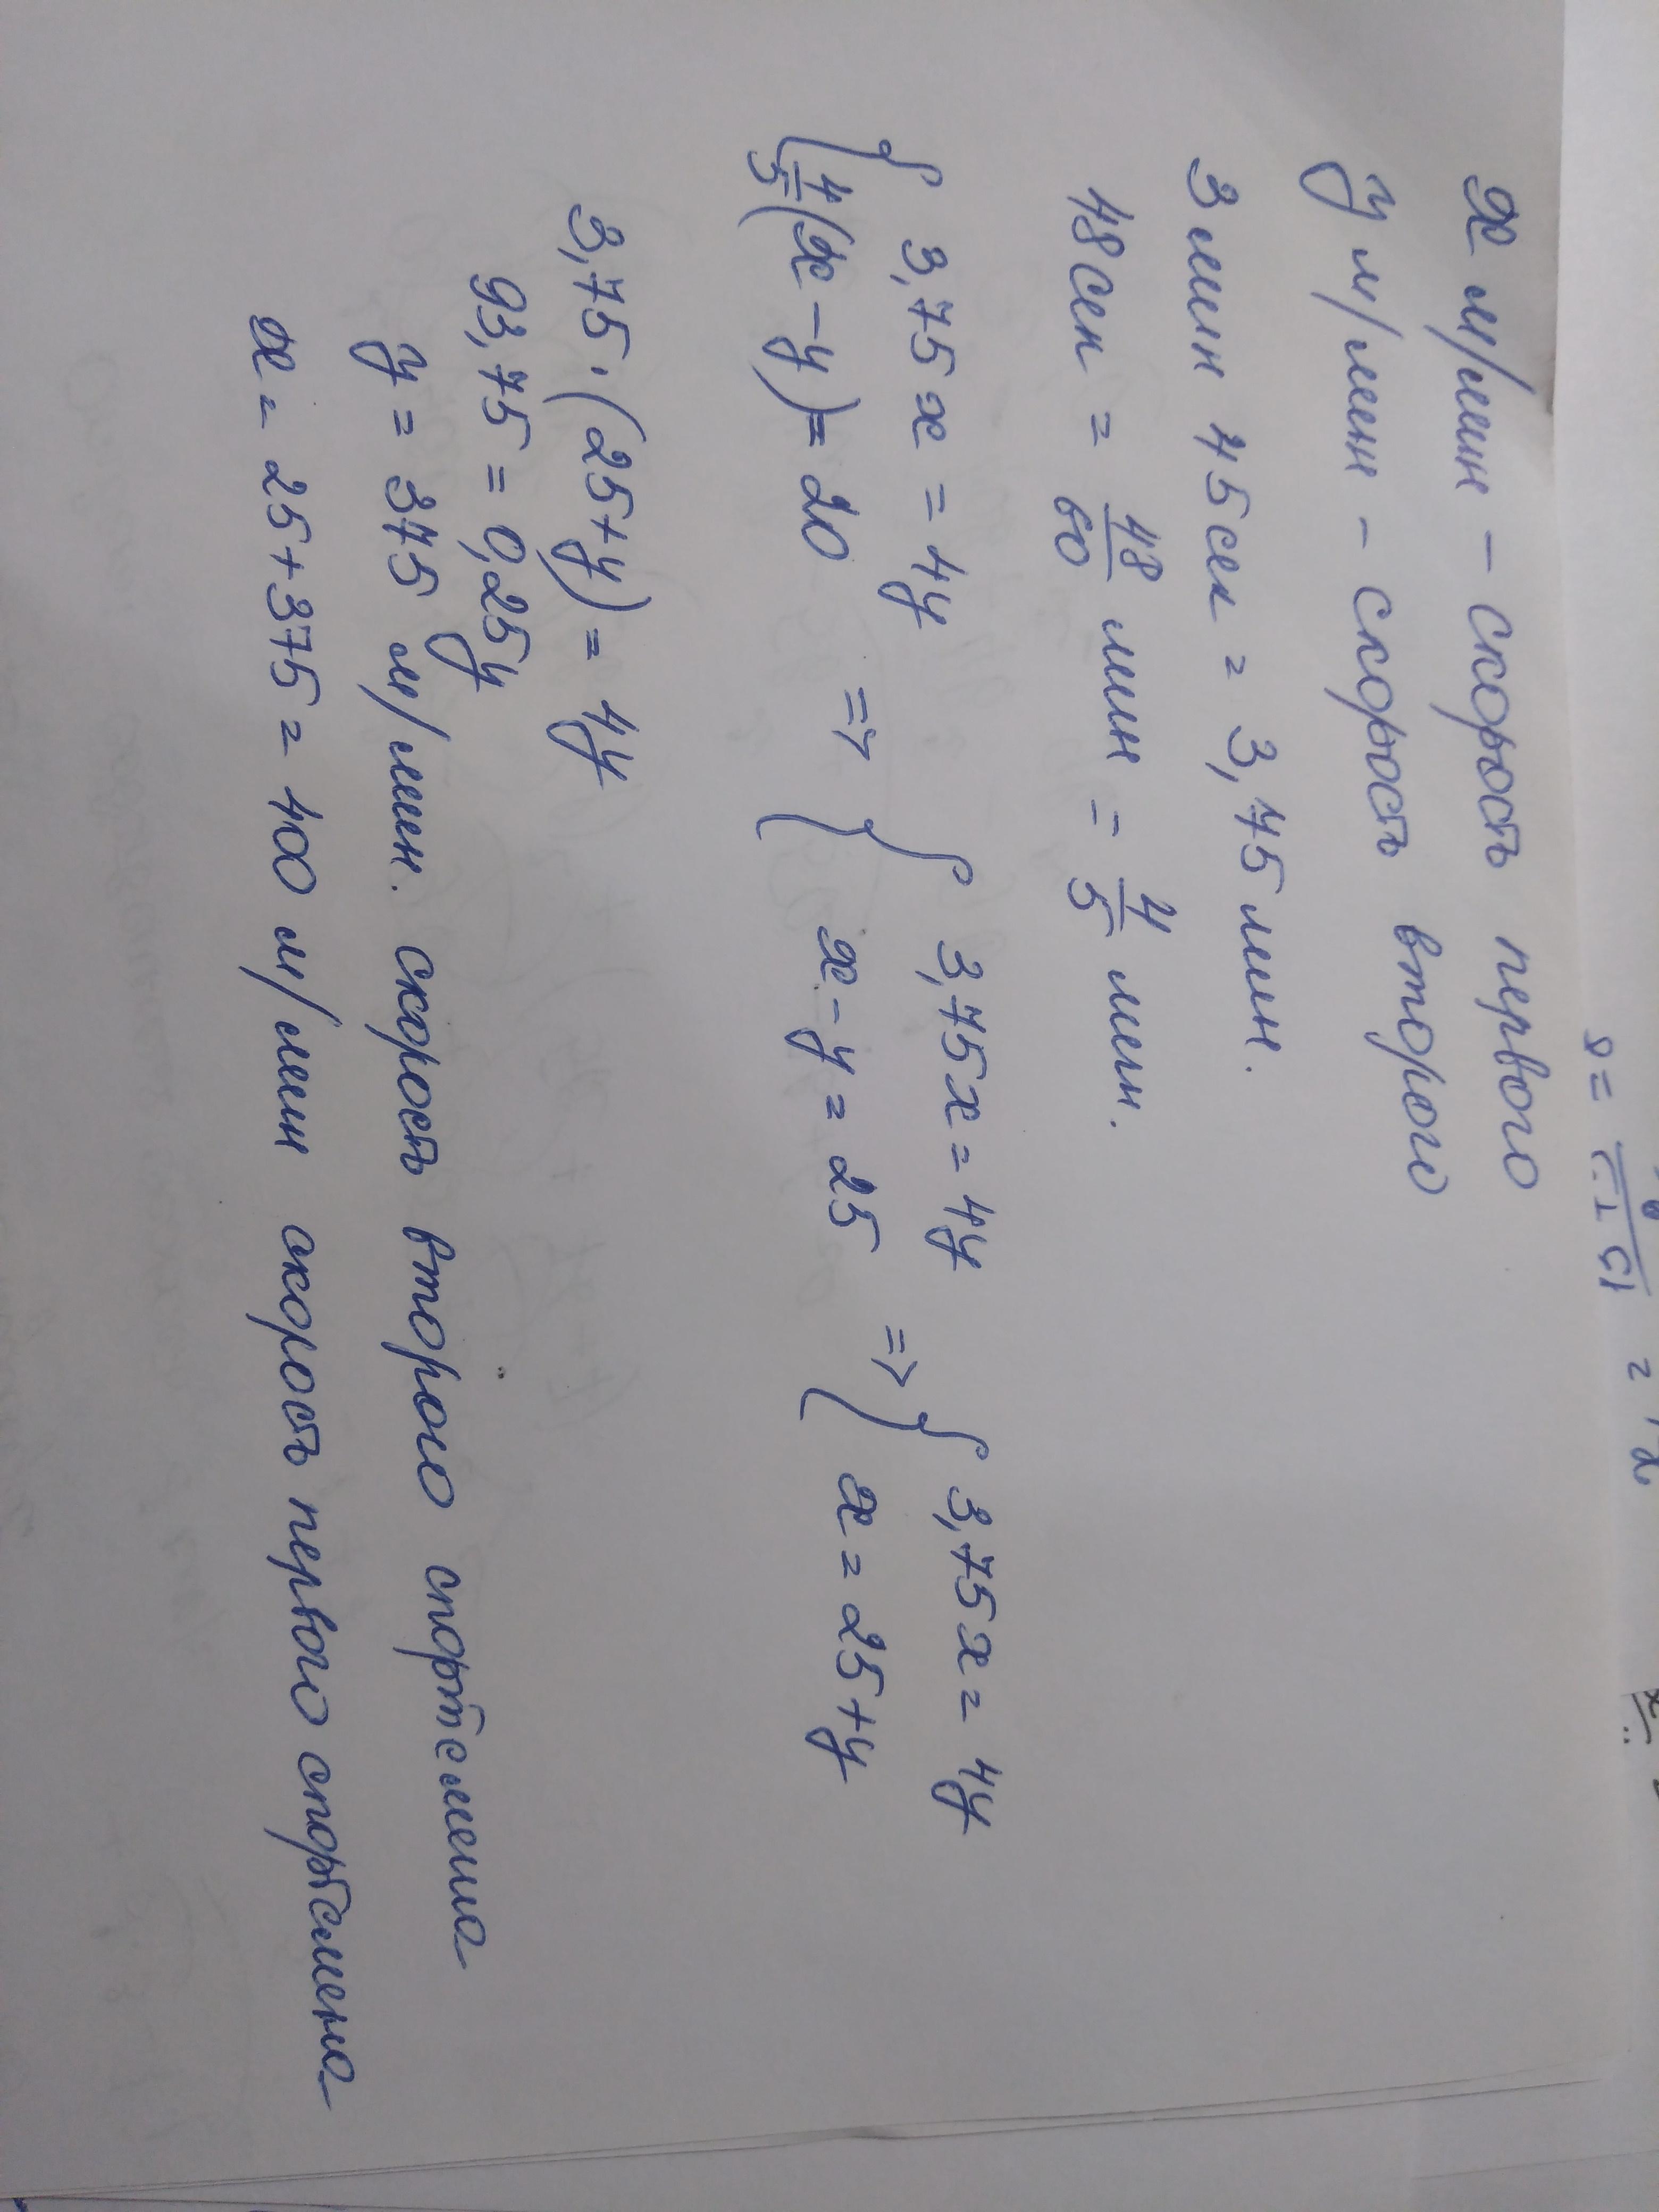 x м/мин – скорость первого
y м/мин – скорость второго
3 мин 45 сек = 3,75 мин.
48 сек = 48/60 мин = 4/5 мин.
{ 3,75x = 4y => { 3,75x = 4y => { 3,75x = 4y
4/5(x – y) = 20 x – y = 25 x = 25 + y
3,75 · (25 + y) = 4y
93,75 = 0,25y
y = 375 м/мин. скорость второго спортсмена
x = 25 + 375 = 400 м/мин скорость первого спортсмена